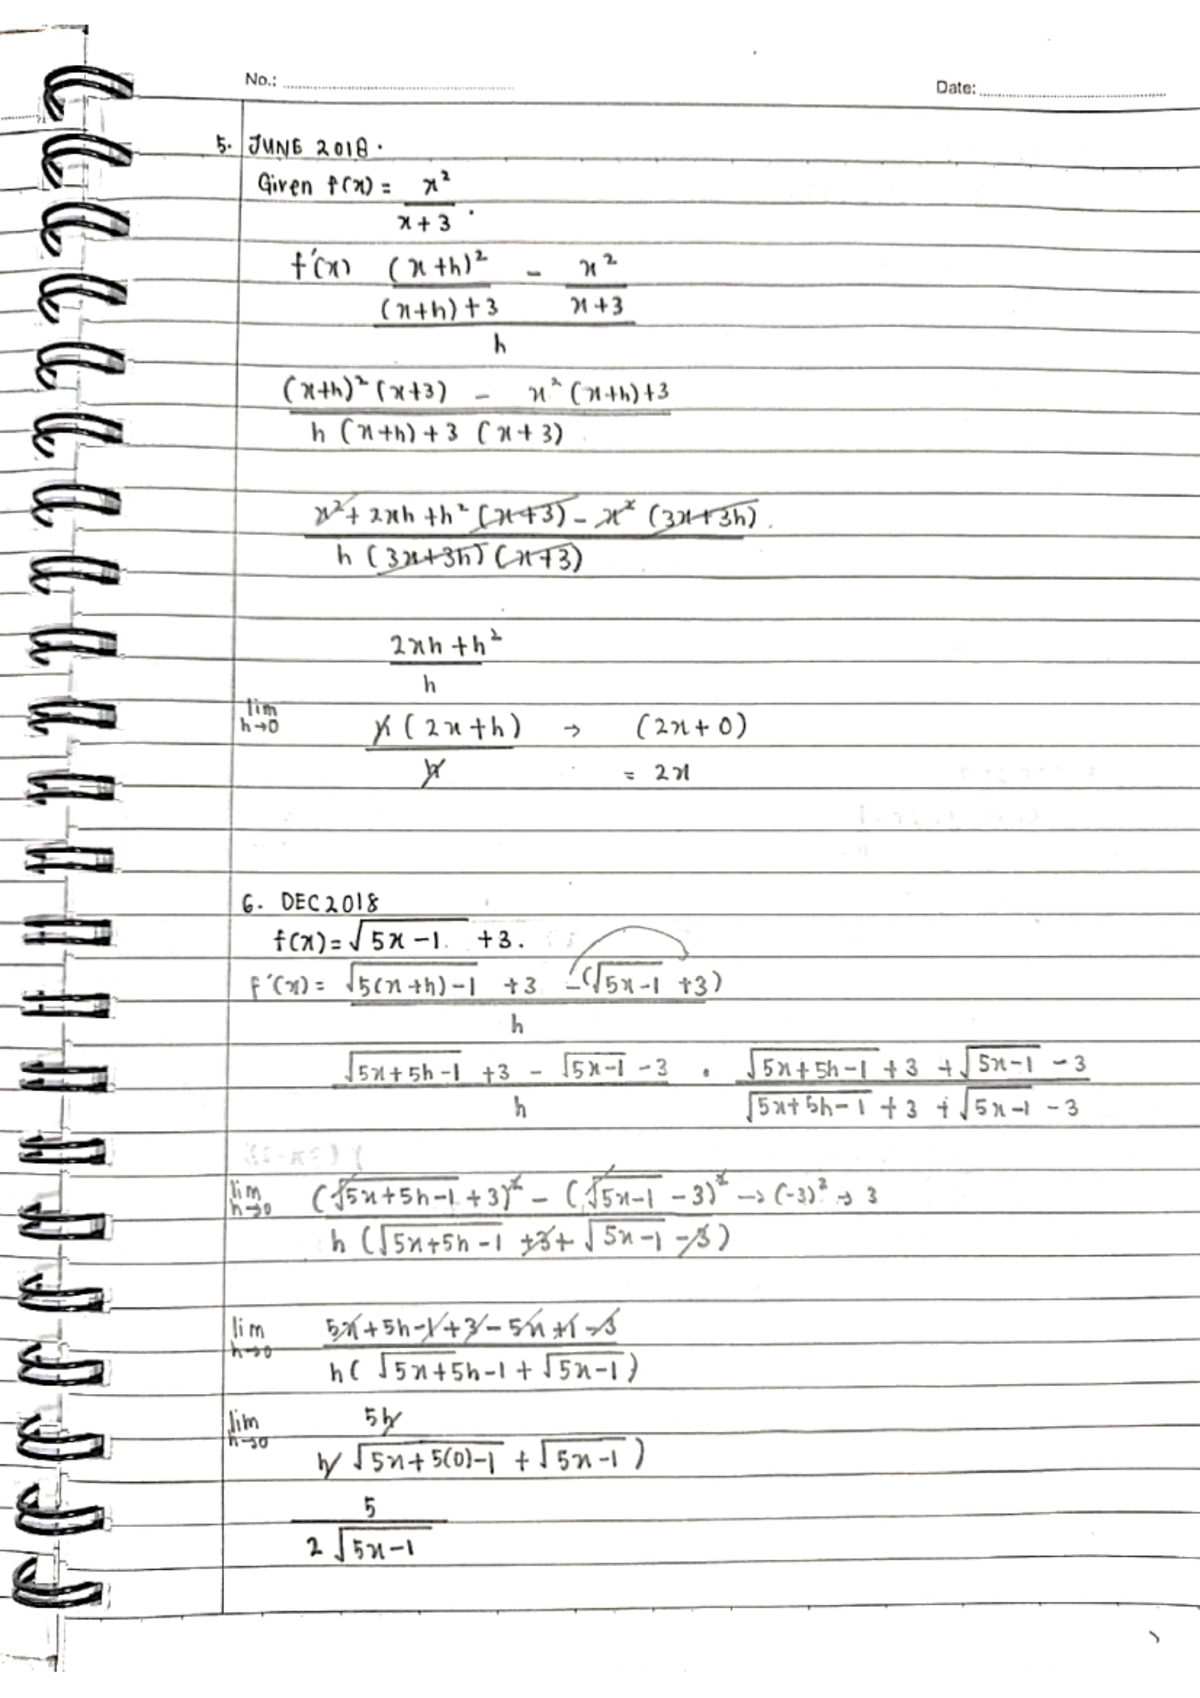 No.: Date:
5. JUNE 2018.
Given f(x) = x²
x + 3 .
f'(x) (x+h)² - x²
(x+h)+3 x+3
h
(x+h)² (x+3) - x² (x+h)+3
h (x+h)+3 (x+3)
x² + 2xh + h² (x+3) - x² (3x+3h).
h (3x+3h) (x+3)
2xh + h²
h
lim h→0 h(2x+h) → (2x+0)
h = 2x
6. DEC 2018
f(x) = √5x-1 +3.
f'(x) = √5(x+h)-1 +3 -(√5x-1 +3)
h
√5x+5h-1 +3 - √5x-1 -3 . √5x+5h-1 +3 +√5x-1 -3
h √5x+5h-1 +3 +√5x-1 -3
lim h→0 (√5x+5h-1 +3)² - (√5x-1 -3)² → (-3)² → 3
h (√5x+5h-1 +3+ √5x-1 -3)
lim h→0 5x+5h-1+3-5x+1-3
h( √5x+5h-1 + √5x-1)
lim h→0 5h
h √5x+5(0)-1 + √5x-1 )
5
2 √5x-1